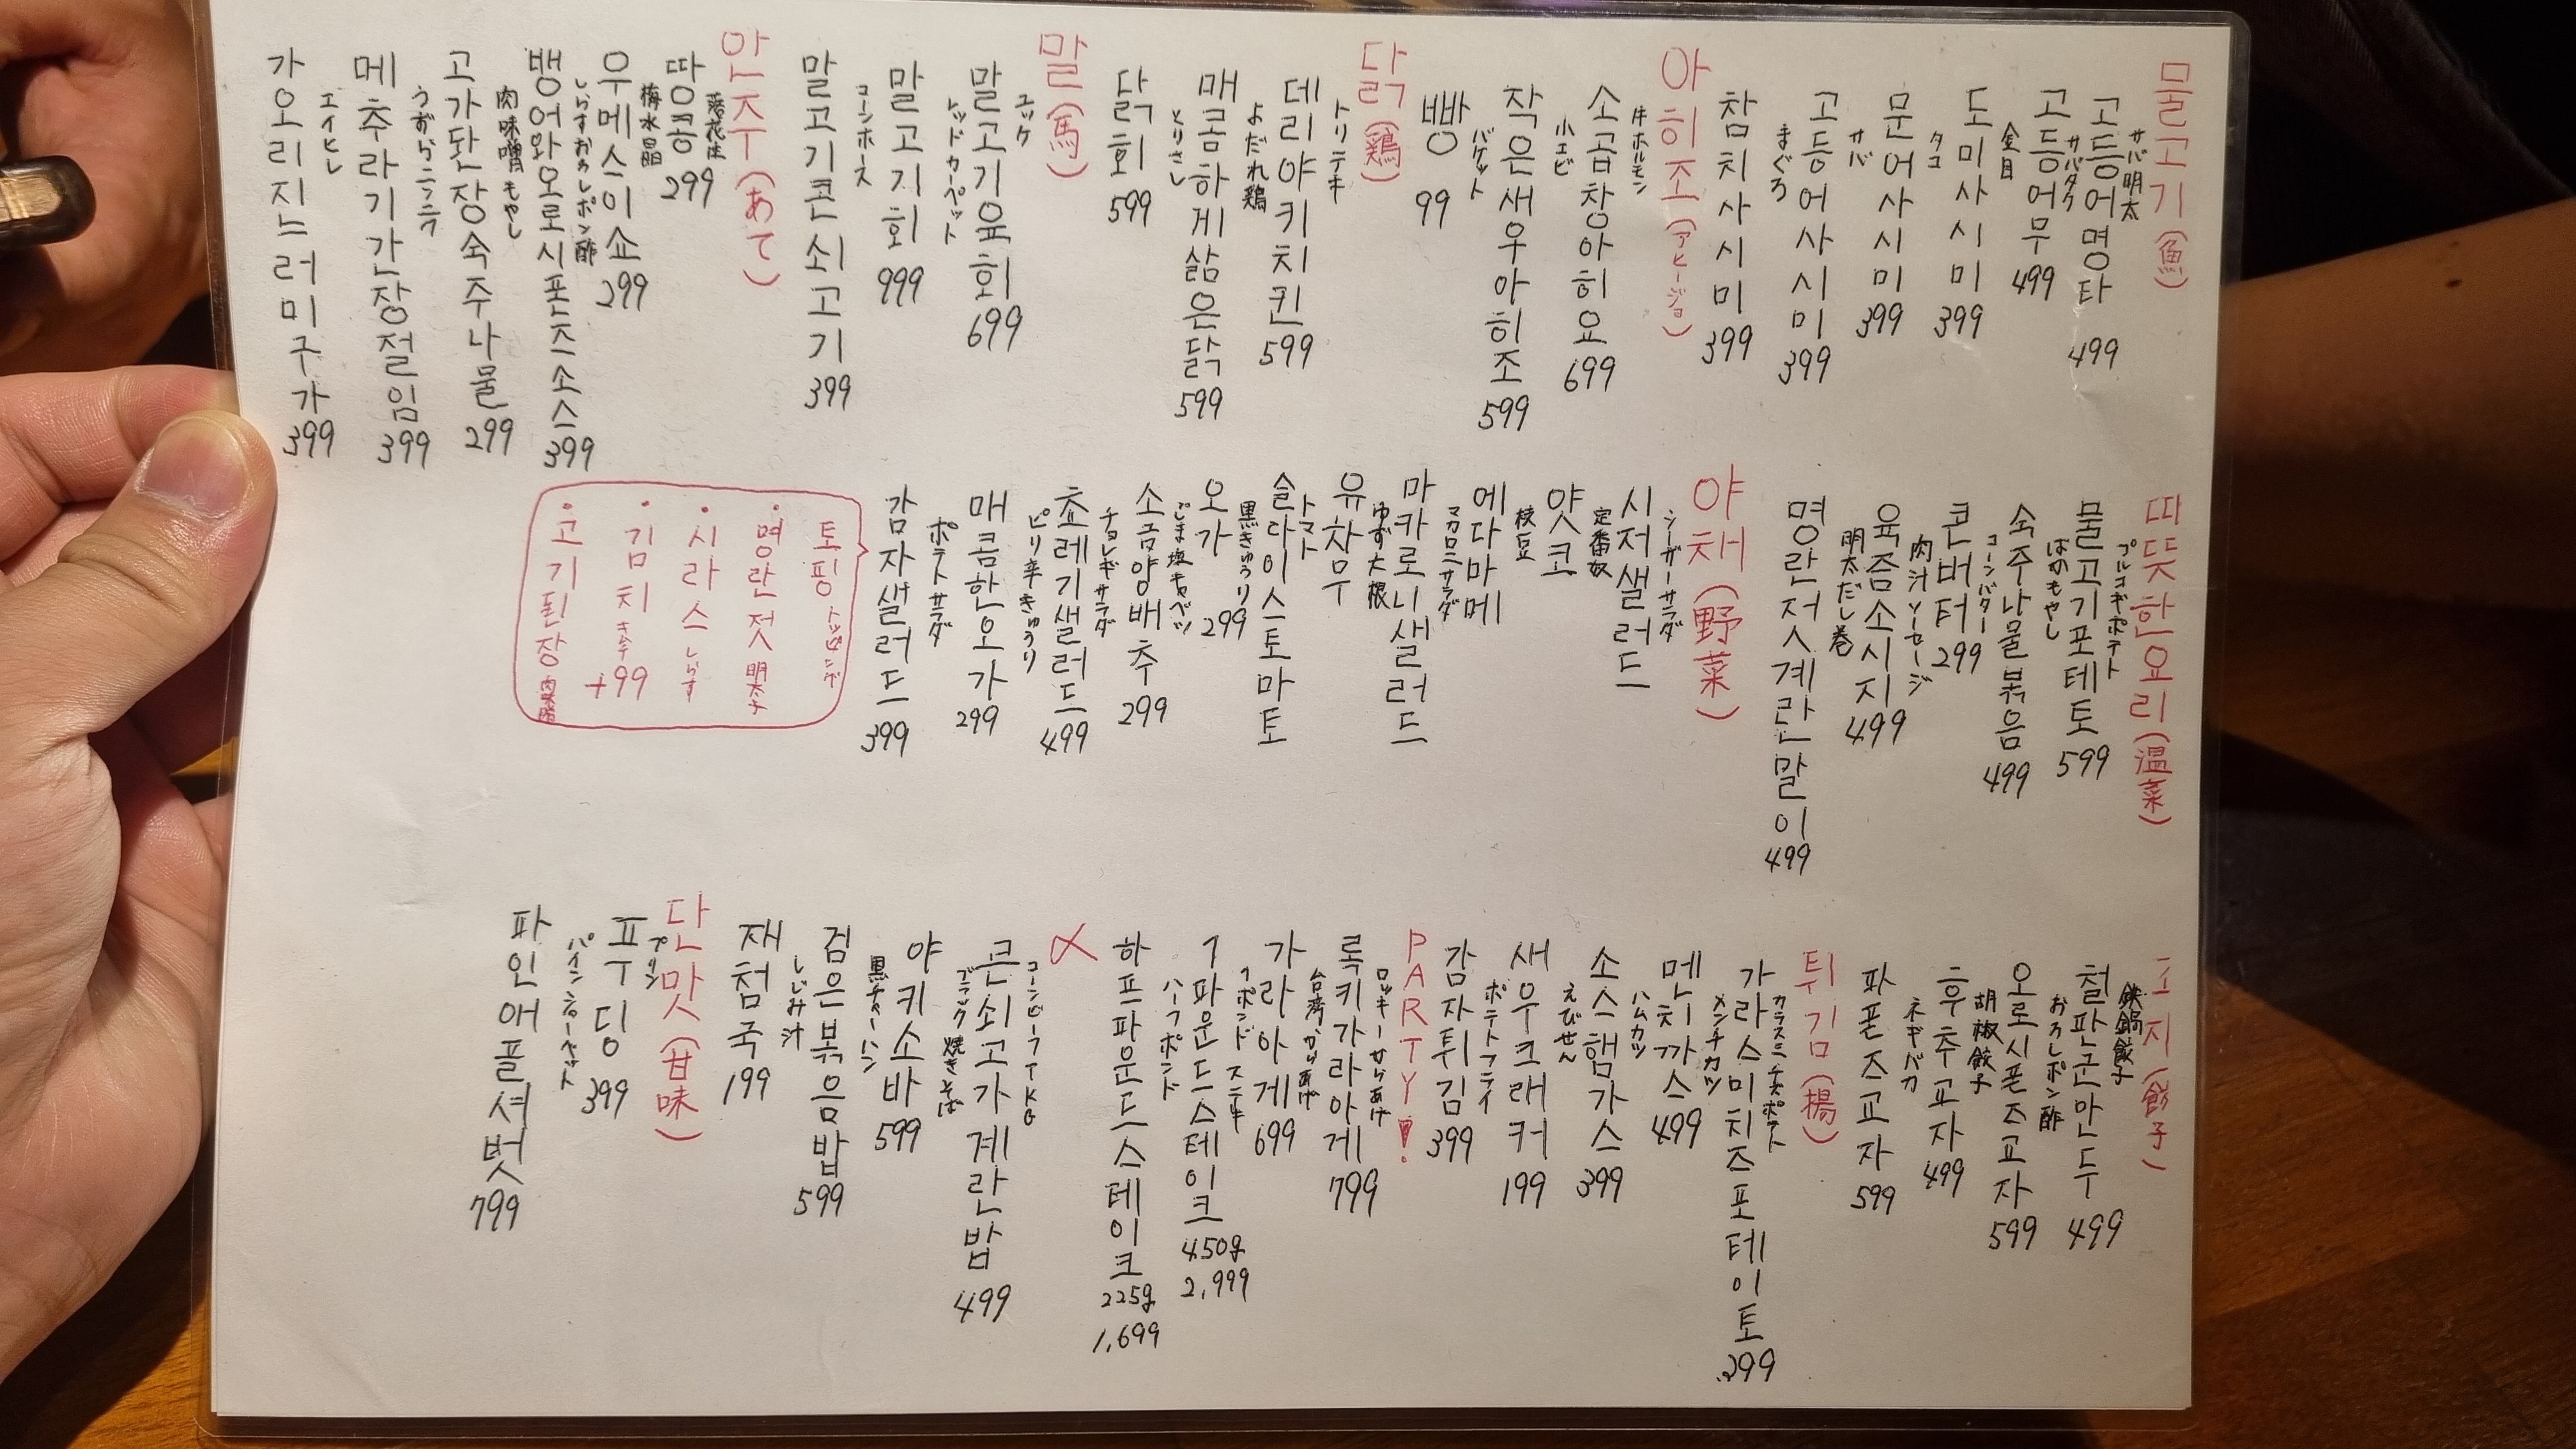 물고기(魚)
サバ明太
고등어명타 499
サバタク
고등어무 499
金目
도미사시미 399
タコ
문어사시미 399
サバ
고등어사시미 399
まぐろ
참치사시미 399
아히조(アヒージョ)
牛ホルモン
소곱창아히요 699
小エビ
작은새우아히조 599
バケット
빵 99
닭(鶏)
トリテキ
데리야키치킨 599
よだれ鶏
매콤하게삶은닭 599
とりさし
닭회 599
말(馬)
ユッケ
말고기육회 699
レッドカーペット
말고기회 999
コーンホース
말고기콘쇠고기 399
안주(あて)
落花生
땅콩 299
梅水晶
우메스이쇼 299
しらすおろしポン酢
뱅어와오로시폰즈소스 399
肉味噌もやし
고가된장숙주나물 299
うずらニンニク
메추라기간장절임 399
エイヒレ
가오리지느러미구가 399
따뜻한요리(温菜)
プルコギポテト
물고기포테토 599
ばかもやし
숙주나물볶음 499
コーンバター
콘버터 299
肉汁ソーセージ
육즙소시지 499
明太だし巻
명란젓계란말이 499
야채(野菜)
シーザーサラダ
시저샐러드
定番奴
얏코
枝豆
에다마메
マカロニサラダ
마카로니샐러드
ゆず大根
유차무
トマト
슬라이스토마토
黒きゅうり
오가 299
ごま塩キャベツ
소금양배추 299
チョレギサラダ
쵸레기샐러드 499
ピリ辛きゅうり
매콤한오가 299
ポテトサラダ
감자샐러드 399
토핑 トッピング
・명란젓 明太子
・시라스 しらす
・김치 キムチ +99
・고기된장 肉味噌
교자(餃子)
鉄鍋餃子
철판군만두 499
おろしポン酢
오로시폰즈교자 599
胡椒餃子
후추교자 499
ネギバカ
파폰즈교자 599
튀김(揚)
カラスミチーズポテト
가라스미치즈포테이토 399
メンチカツ
멘치까스 499
ハムカツ
소스햄가스 399
えびせん
새우크래커 199
ポテトフライ
감자튀김 399
PARTY!
ロッキーからあげ
록키가라아게 799
台湾からあげ
가라아게 699
1ポンドステーキ
1파운드스테이크 450g 2,999
ハーフポンド
하프파운드스테이크 225g 1,699
〆
コーンビーフTKG
콘쇠고가계란밥 499
ブラック焼きそば
야키소바 599
黒チャーハン
검은볶음밥 599
しじみ汁
재첩국 199
단맛(甘味)
プリン
푸딩 399
パインシャーベット
파인애플셔벗 799